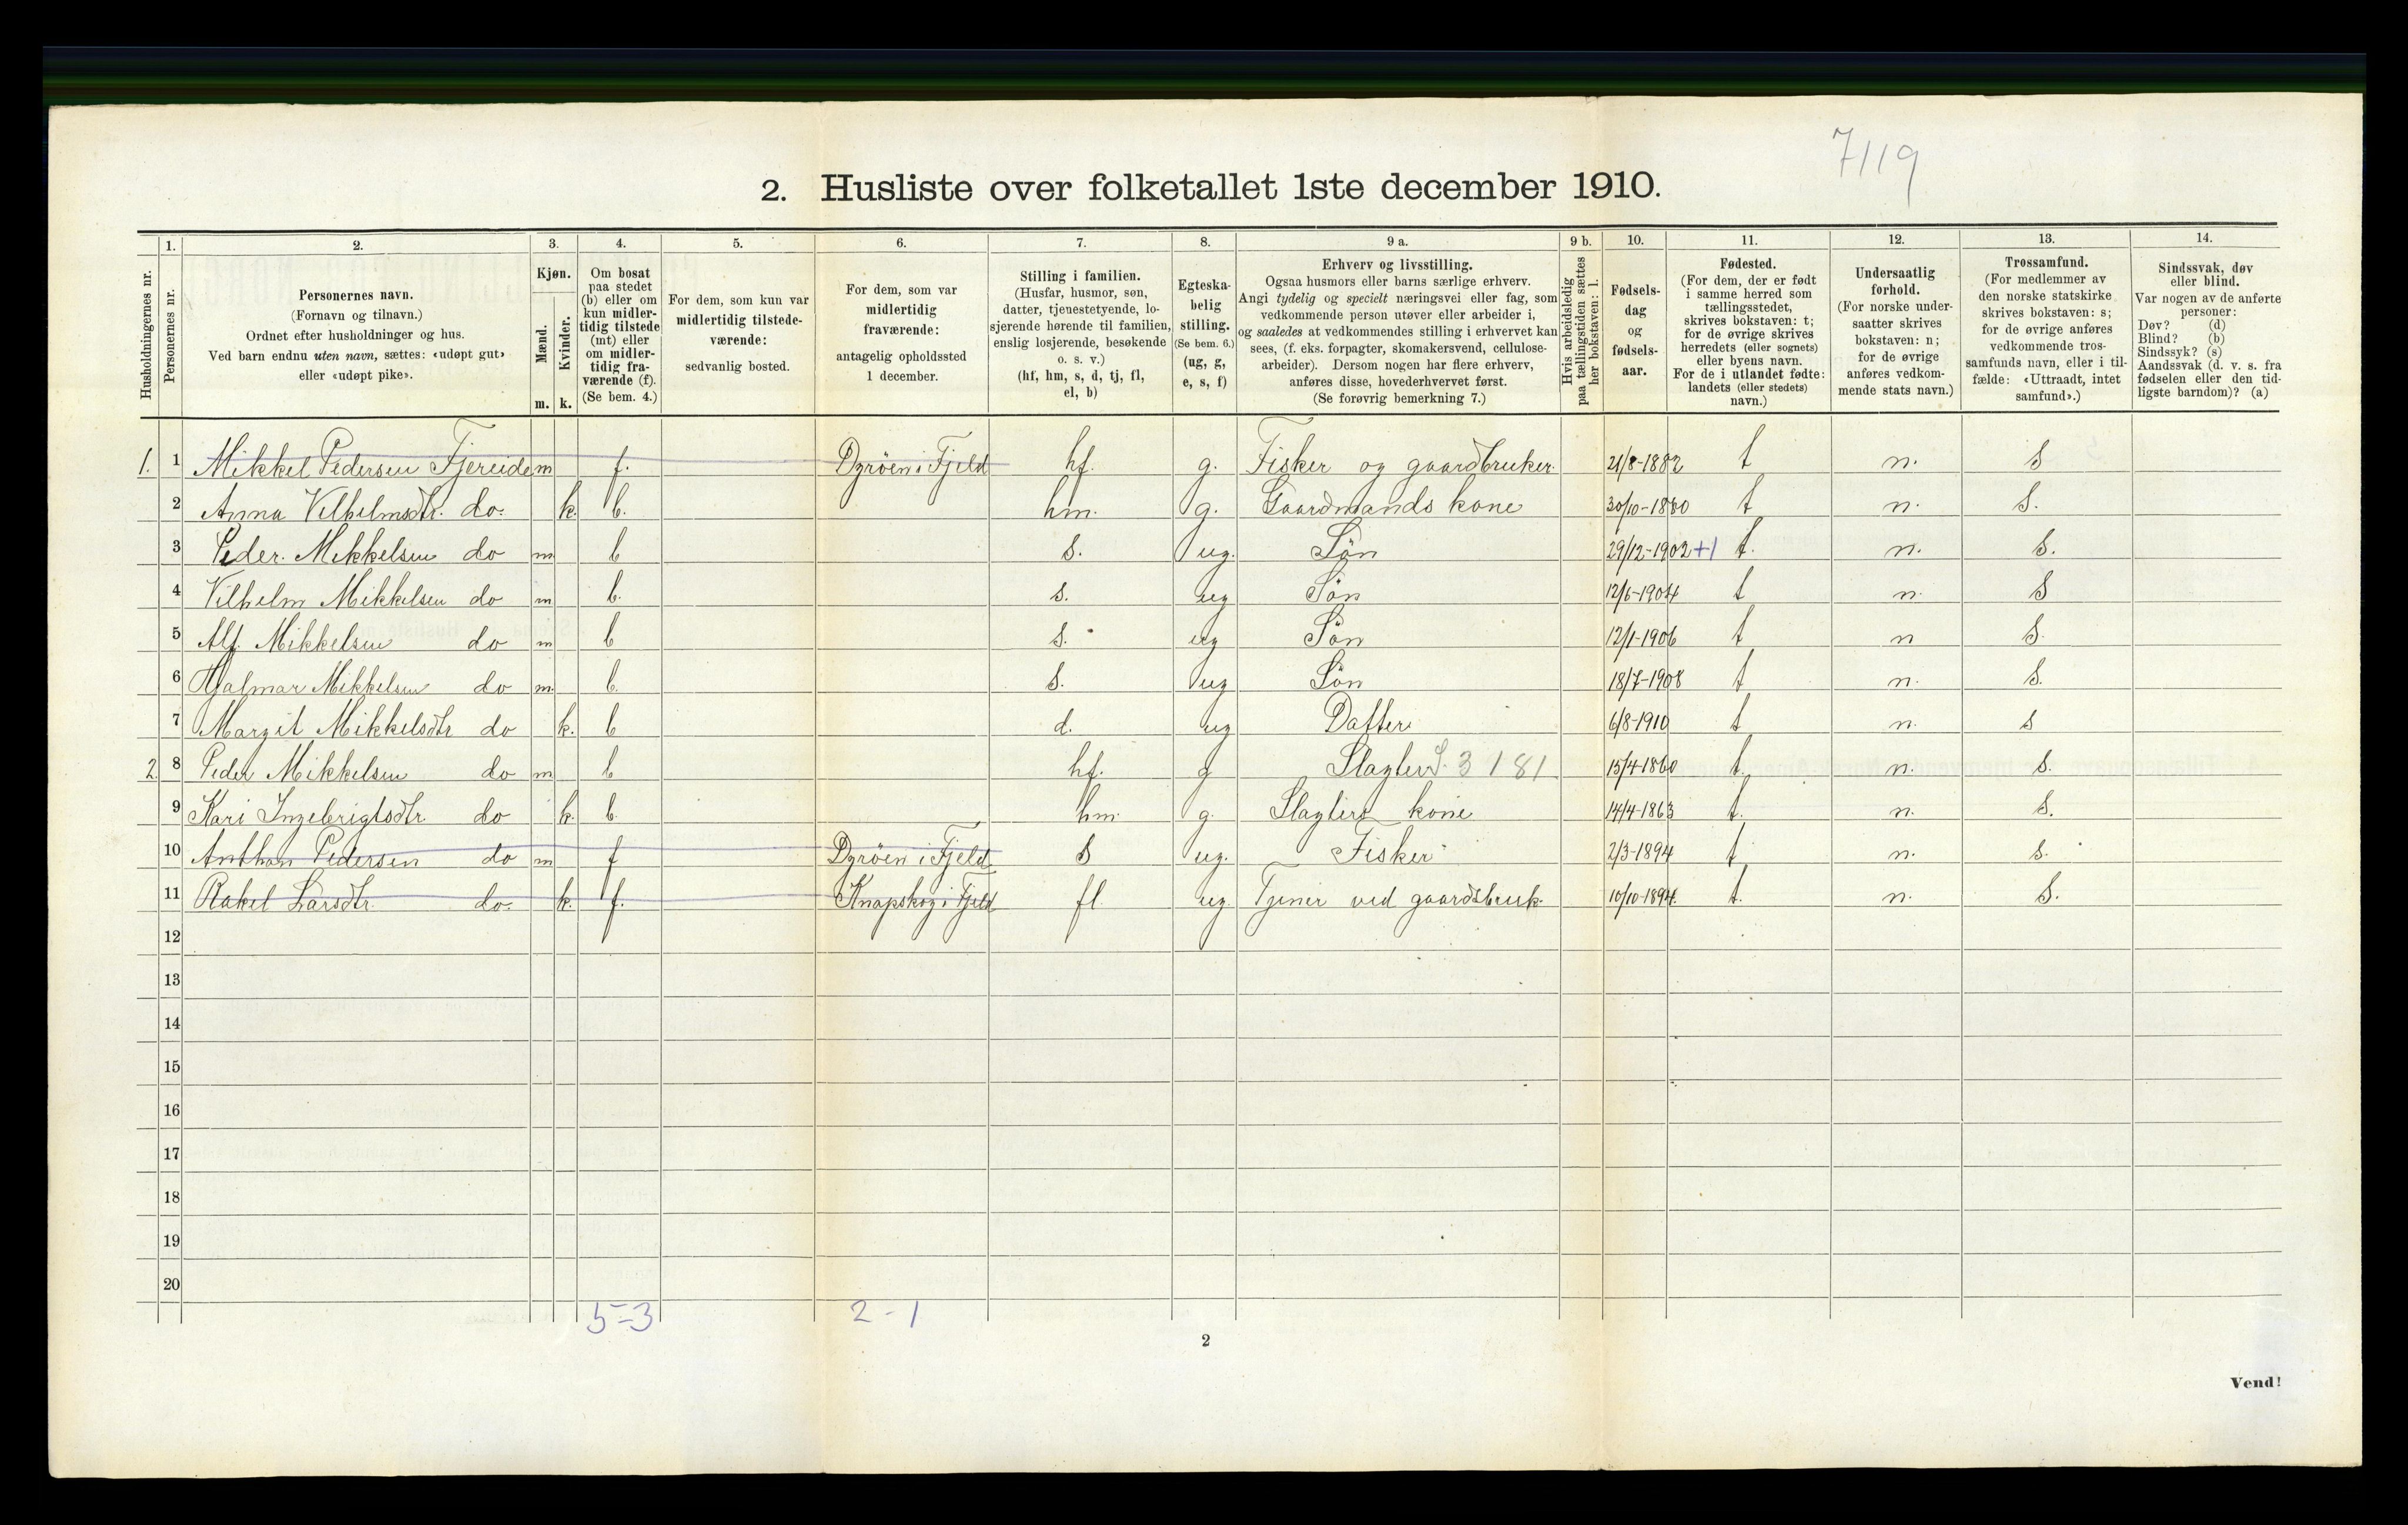 7119
2. Husliste over folketallet 1ste december 1910.
1. 2. 3. 4. 5. 6. 7. 8. 9 a. 9 b. 10. 11. 12. 13. 14.
Husholdningernes nr.
Personernes nr.
Personernes navn.
(Fornavn og tilnavn.)
Ordnet efter husholdninger og hus.
Ved barn endnu uten navn, sættes: «udøpt gut»
eller «udøpt pike».
Kjøn.
Mænd.
Kvinder.
m. k.
Om bosat
paa stedet
(b) eller om
kun midler-
tidig tilstede
(mt) eller
om midler-
tidig fra-
værende (f).
(Se bem. 4.)
For dem, som kun var
midlertidig tilstede-
værende:
sedvanlig bosted.
For dem, som var
midlertidig
fraværende:
antagelig opholdssted
1 december.
Stilling i familien.
(Husfar, husmor, søn,
datter, tjenestetyende, lo-
sjerende hørende til familien,
enslig losjerende, besøkende
o. s. v.)
(hf, hm, s, d, tj, fl,
el, b)
Egteska-
belig
stilling.
(Se bem. 6.)
(ug, g,
e, s, f)
Erhverv og livsstilling.
Ogsaa husmors eller barns særlige erhverv.
Angi tydelig og specielt næringsvei eller fag, som
vedkommende person utøver eller arbeider i,
og saaledes at vedkommendes stilling i erhvervet kan
sees, (f. eks. forpagter, skomakersvend, cellulose-
arbeider). Dersom nogen har flere erhverv,
anføres disse, hovederhvervet først.
(Se forøvrig bemerkning 7.)
Hvis arbeidsledig
paa tællingstiden sættes
her bokstaven: l.
Fødsels-
dag
og
fødsels-
aar.
Fødested.
(For dem, der er født
i samme herred som
tællingsstedet,
skrives bokstaven: t;
for de øvrige skrives
herredets (eller sognets)
eller byens navn.
For de i utlandet fødte:
landets (eller stedets)
navn.)
Undersaatlig
forhold.
(For norske under-
saatter skrives
bokstaven: n;
for de øvrige
anføres vedkom-
mende stats navn.)
Trossamfund.
(For medlemmer av
den norske statskirke
skrives bokstaven: s;
for de øvrige anføres
vedkommende tros-
samfunds navn, eller i til-
fælde: «Uttraadt, intet
samfund».)
Sindssvak, døv
eller blind.
Var nogen av de anførte
personer:
Døv? (d)
Blind? (b)
Sindssyk? (s)
Aandssvak (d. v. s. fra
fødselen eller den tid-
ligste barndom)? (a)
1. 1 Mikkel Pedersen Fjereide m f. Dyröen i Fjeld hf. g. Fisker og gaardbruker. 21/8-1882 t n. S
2 Anna Vilhelmsdtr. do. k. b. hm. g. Gaardmands kone 30/10-1880 t n. S.
3 Peder. Mikkelsen do m. b s. ug. Sön 29/12-1902 +1 t. n. S.
4 Vilhelm Mikkelsen do m b. s. ug Sön 12/6-1904 t n. S
5 Alf. Mikkelsen do m b s. ug Sön 12/1-1906 t n S.
6 Hjalmar Mikkelsen do m. b. s. ug Sön 18/7-1908 t n. S.
7 Margit Mikkelsdtr do k. b d. ug Datter 6/8-1910 t n. s
2. 8 Peder Mikkelsen do m b hf. g Slagter S. 3 181 15/4-1860 t. n. S.
9 Kari Ingebrigtsdtr. do k. b. hm. g. Slagters kone 14/4-1863 t. n. S.
10 Anthon Pedersen do m f Dyröen i Fjeld S ug. Fisker 2/3-1894 t. n. S.
11 Rakel Larsdtr. do. k. f. Knapskog i Fjeld fl ug. Tjener ved gaardsbruk. 10/10-1894. t. n. S.
12
13
14
15
16
17
18
19
20
5-3 2-1
2
Vend!